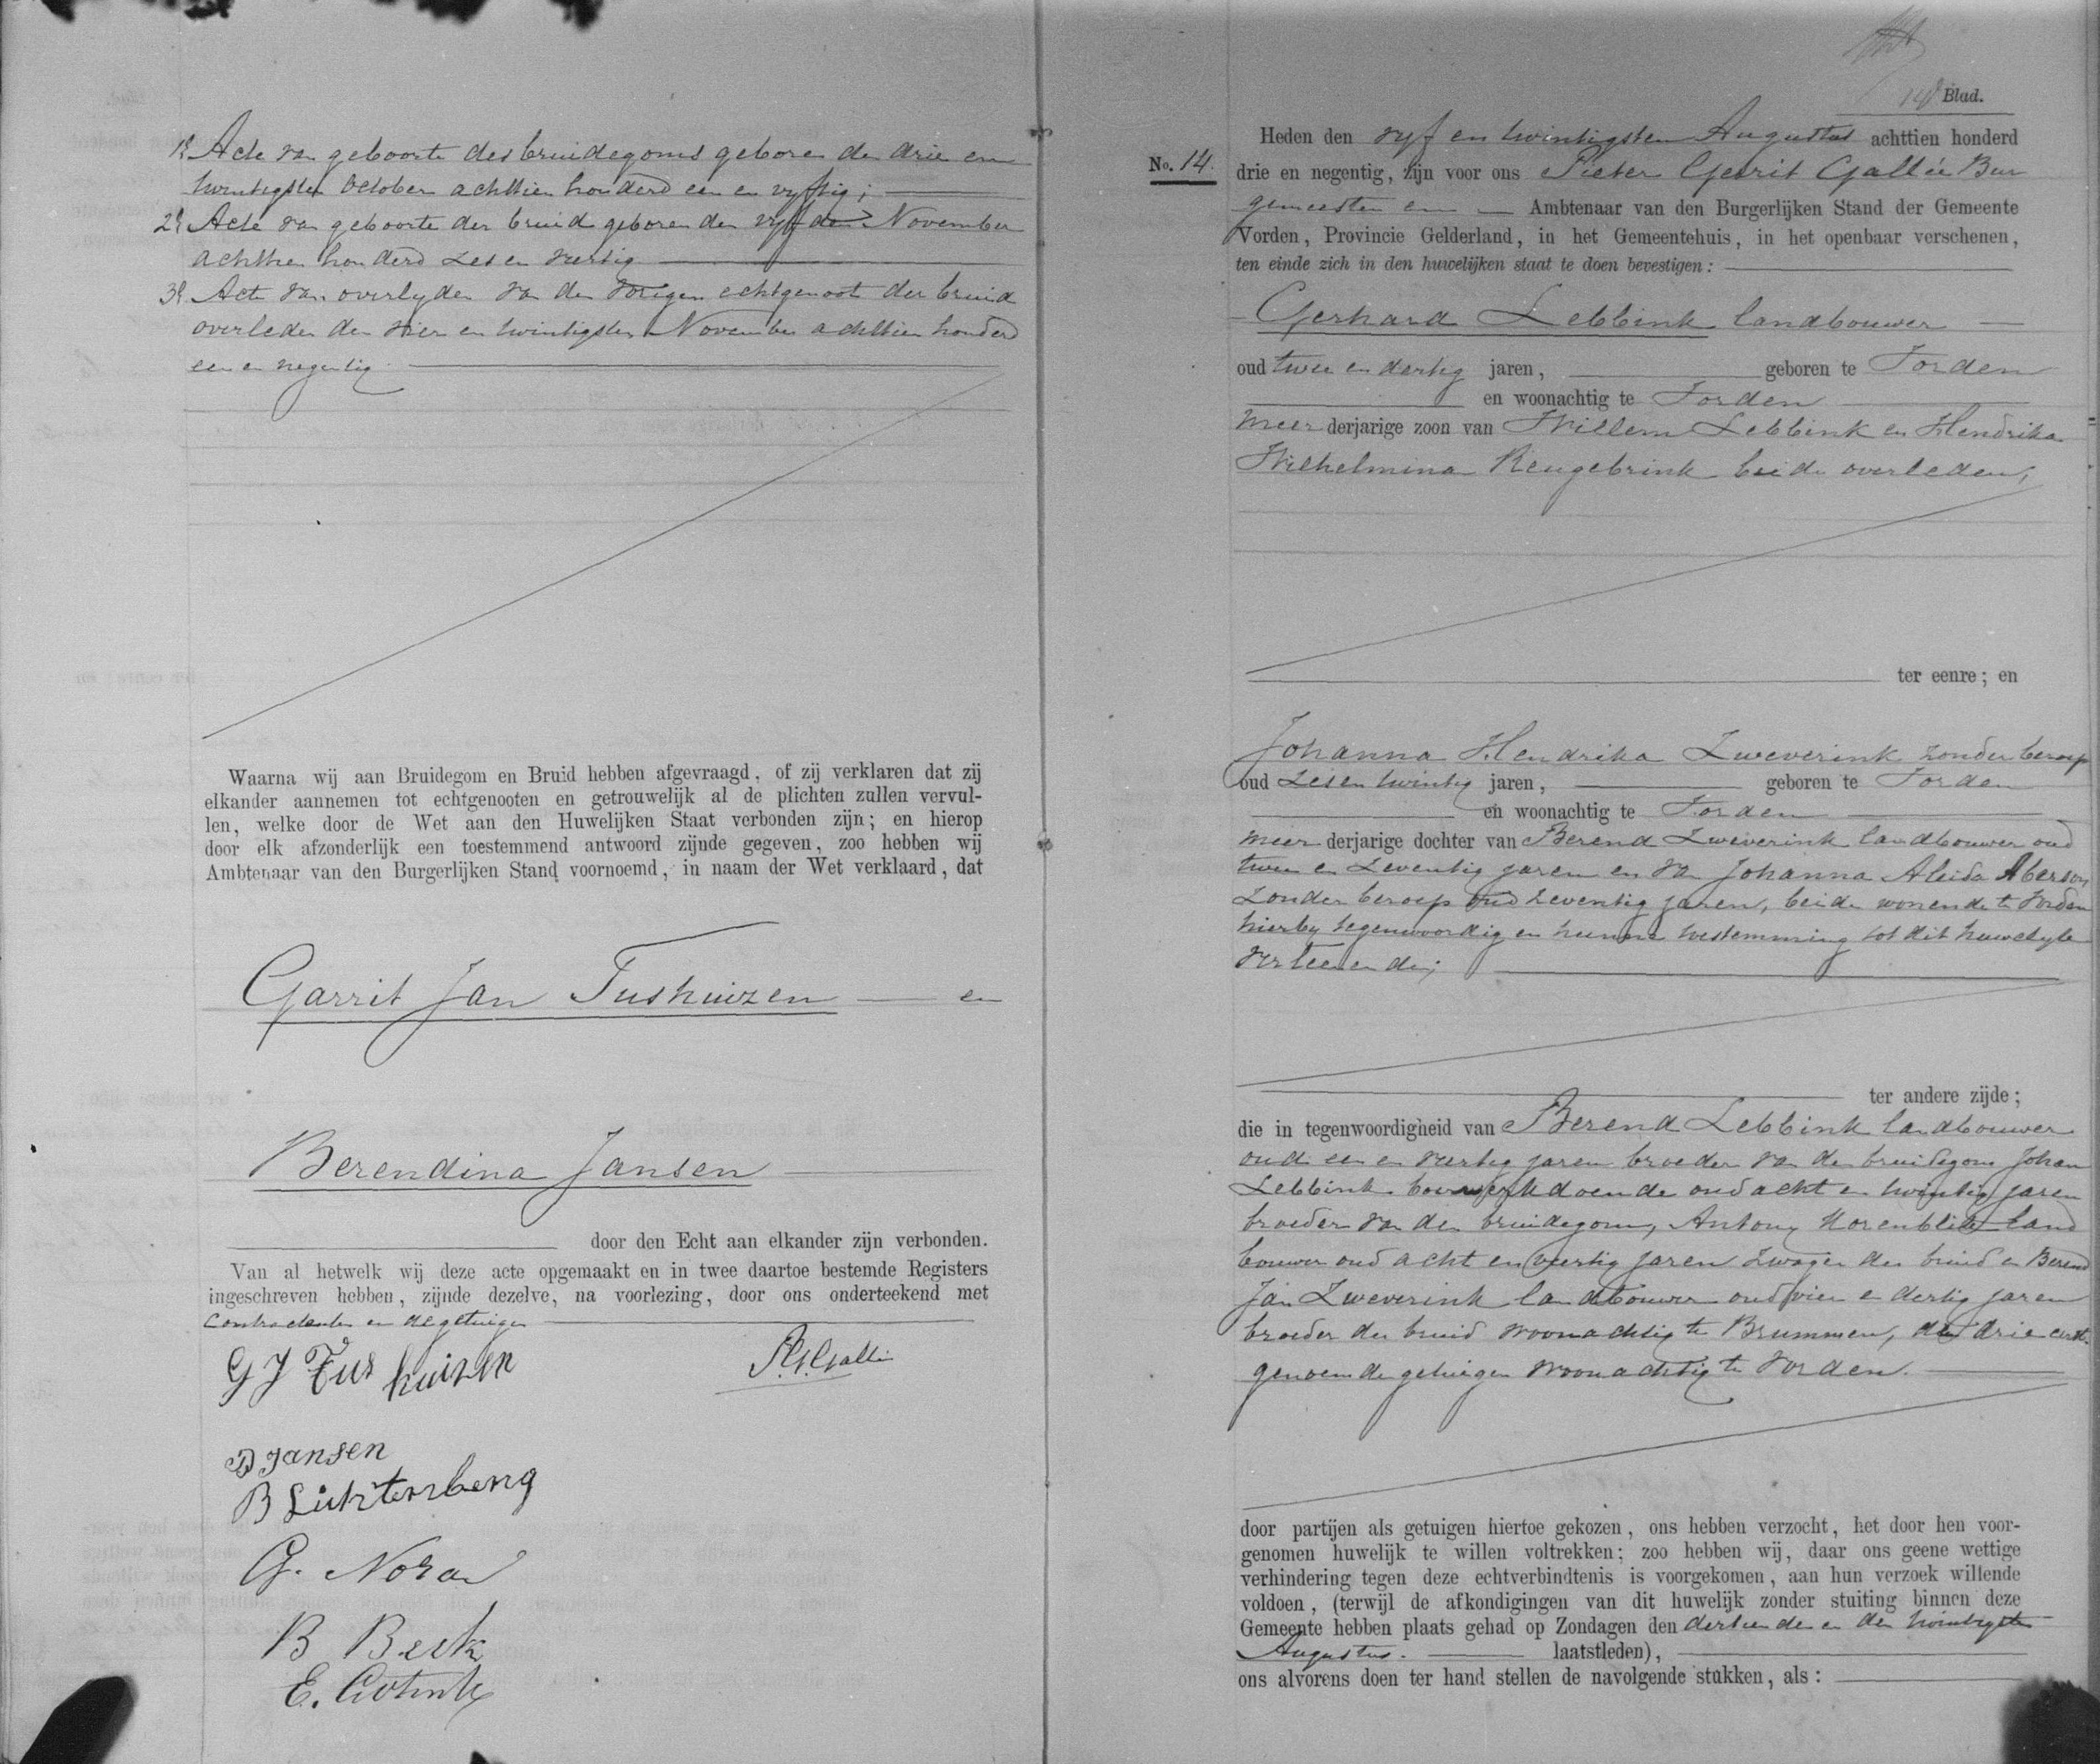 1º Acte van geboorte des bruidegoms geboren den drie en
twintigsten October achttien honderd een en vyftig;
2º Acte van geboorte der bruid geboren den vyfden November
achttien honderd zes en veertig
3º Acte van overlyden van den vorigen echtgenoot der bruid
overleden den vier en twintigsten November achttien honderd
een en negentig.
Waarna wij aan Bruidegom en Bruid hebben afgevraagd, of zij verklaren dat zij
elkander aannemen tot echtgenooten en getrouwelijk al de plichten zullen vervul-
len, welke door de Wet aan den Huwelijken Staat verbonden zijn; en hierop
door elk afzonderlijk een toestemmend antwoord zijnde gegeven, zoo hebben wij
Ambtenaar van den Burgerlijken Stand voornoemd, in naam der Wet verklaard, dat
Garrit Jan Tushuizen en
Berendina Jansen
door den Echt aan elkander zijn verbonden.
Van al hetwelk wij deze acte opgemaakt en in twee daartoe bestemde Registers
ingeschreven hebben, zijnde dezelve, na voorlezing, door ons onderteekend met
contractanten en de getuigen
G J Tushuizen
P. G. Gallée
B Jansen
B Lichtenberg
G.
B
E.
Blad.
No. 14.
Heden den vyf en twintigsten Augustus achttien honderd
drie en negentig, zijn voor ons Pieter Gerrit Gallée Bur
gemeester en Ambtenaar van den Burgerlijken Stand der Gemeente
Vorden, Provincie Gelderland, in het Gemeentehuis, in het openbaar verschenen,
ten einde zich in den huwelijken staat te doen bevestigen:
Gerhard Lebbink landbouwer
oud twee en dertig jaren, geboren te Vorden
en woonachtig te Vorden
meer derjarige zoon van Willem Lebbink en Hendrika
Wilhelmina Reugebrink beide overleden;
ter eenre; en
Johanna Hendrika Zweverink zonder beroep
oud zes en twintig jaren, geboren te Vorden
en woonachtig te Vorden
meer derjarige dochter van Berend Zweverink landbouwer oud
twee en zeventig jaren en van Johanna Aleida Aberson
zonder beroep oud zeventig jaren, beide wonende te Vorden
hierby tegenwoordig en hunne toestemming tot dit huwelyk
verleenende;
ter andere zijde;
die in tegenwoordigheid van Berend Lebbink landbouwer
oud een en veertig jaren broeder van den bruidegom Johan
Lebbink bouwwerkdoende oud acht en twintig jaren
broeder van den bruidegom, Antony Korenblik land
bouwer oud acht en veertig jaren zwager der bruid en Berend
Jan Zweverink landbouwer oud vier en dertig jaren
broeder der bruid woonachtig te Brummen, de drie eerst
genoemde getuigen woonachtig te Vorden.
door partijen als getuigen hiertoe gekozen, ons hebben verzocht, het door hen voor-
genomen huwelijk te willen voltrekken; zoo hebben wij, daar ons geene wettige
verhindering tegen deze echtverbindtenis is voorgekomen, aan hun verzoek willende
voldoen, (terwijl de afkondigingen van dit huwelijk zonder stuiting binnen deze
Gemeente hebben plaats gehad op Zondagen den dertiende en den twintigsten
Augustus. laatstleden),
ons alvorens doen ter hand stellen de navolgende stukken, als: